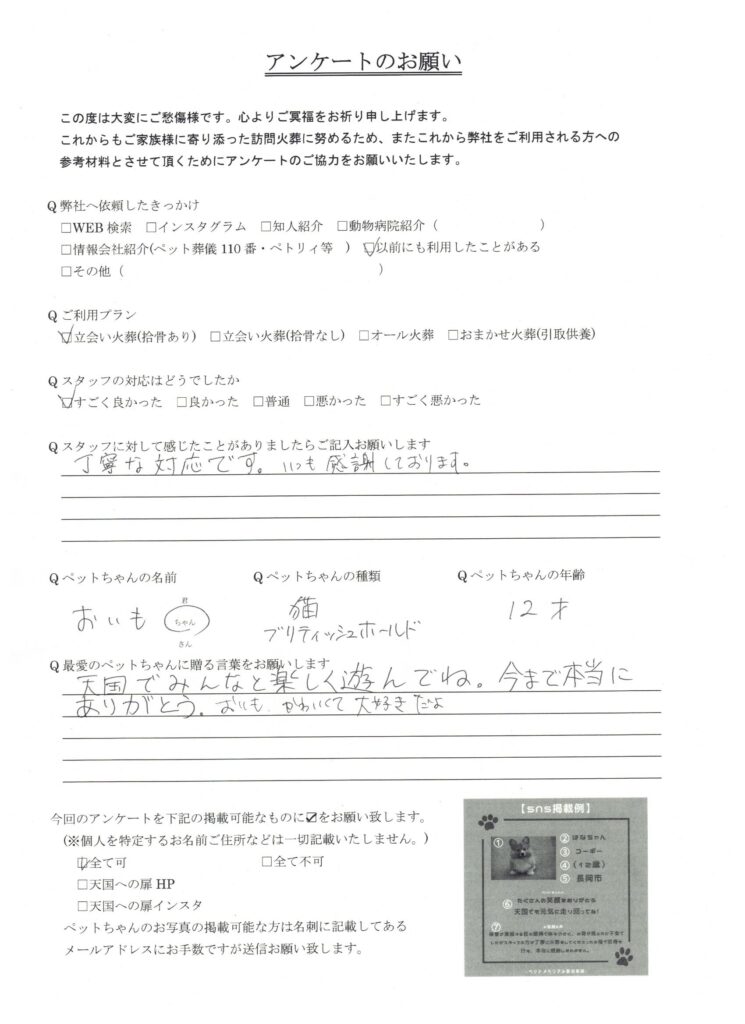 アンケートのお願い
この度は大変にご愁傷様です。心よりご冥福をお祈り申し上げます。
これからもご家族様に寄り添った訪問火葬に努めるため、またこれから弊社をご利用される方への
参考材料とさせて頂くためにアンケートのご協力をお願いいたします。
Q 弊社へ依頼したきっかけ
□WEB 検索 □インスタグラム □知人紹介 □動物病院紹介（ ）
□情報会社紹介(ペット葬儀 110 番・ペトリィ等 ) ☑以前にも利用したことがある
□その他（ ）
Q ご利用プラン
☑立会い火葬(拾骨あり) □立会い火葬(拾骨なし) □オール火葬 □おまかせ火葬(引取供養)
Q スタッフの対応はどうでしたか
☑すごく良かった □良かった □普通 □悪かった □すごく悪かった
Q スタッフに対して感じたことがありましたらご記入お願いします
丁寧な対応です。いつも感謝しております。
Q ペットちゃんの名前 Q ペットちゃんの種類 Q ペットちゃんの年齢
君
おいも ちゃん 猫 12才
さん ブリティッシュホールド
Q 最愛のペットちゃんに贈る言葉をお願いします
天国でみんなと楽しく遊んでね。今まで本当に
ありがとう。おいも、かわいくて大好きだよ
今回のアンケートを下記の掲載可能なものに☑をお願い致します。
(※個人を特定するお名前ご住所などは一切記載いたしません。)
☑全て可 □全て不可
□天国への扉 HP
□天国への扉インスタ
ペットちゃんのお写真の掲載可能な方は名刺に記載してある
メールアドレスにお手数ですが送信お願い致します。
【sns掲載例】
① ② はなちゃん
③ コーギー
④ (12歳)
⑤ 長岡市
⑥ たくさんの笑顔をありがとう
天国でも元気に走り回ってね！
⑦